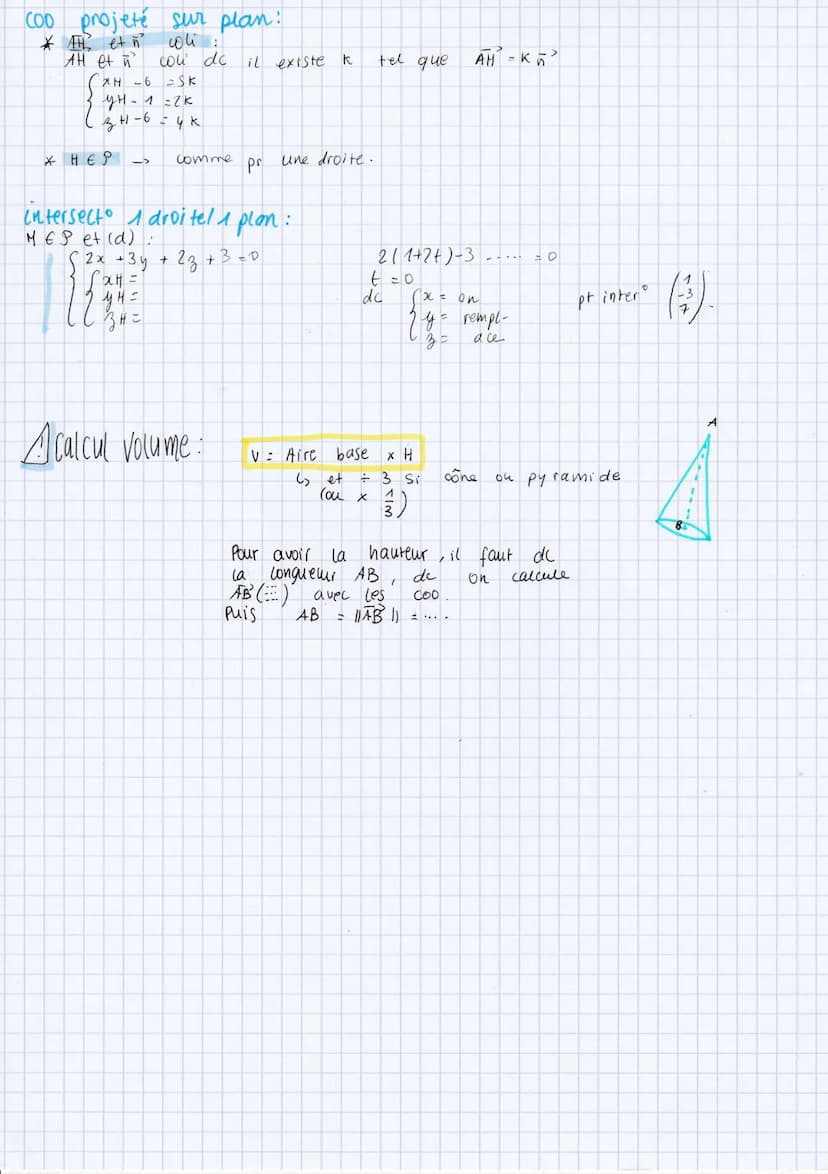 COO projeté sur plan :
* AH⃗ et n⃗ coli :
AH et n⃗ coli dc il existe k tel que AH⃗ = K n⃗
{ xH - 6 = 5K
yH - 1 = 2K
zH - 6 = 4K
* H ∈ P → comme pr une droite.
intersect° 1 droite/1 plan :
M ∈ P et (d) :
{ 2x + 3y + 2z + 3 = 0
{ xH =
yH =
zH =
2(1+2t)-3 ..... = 0
t = 0
dc { x = on
y = rempl-
z = ace
pt inter° (1 -3 7).
⚠ Calcul volume :
V = Aire base x H
↳ et ÷ 3 si cône ou pyramide
(ou x 1/3)
A
B
Pour avoir la hauteur, il faut dc
la longueur AB, dc on calcule
AB⃗ (⋮⋮⋮) avec les coo.
Puis AB = ||AB⃗|| = ....